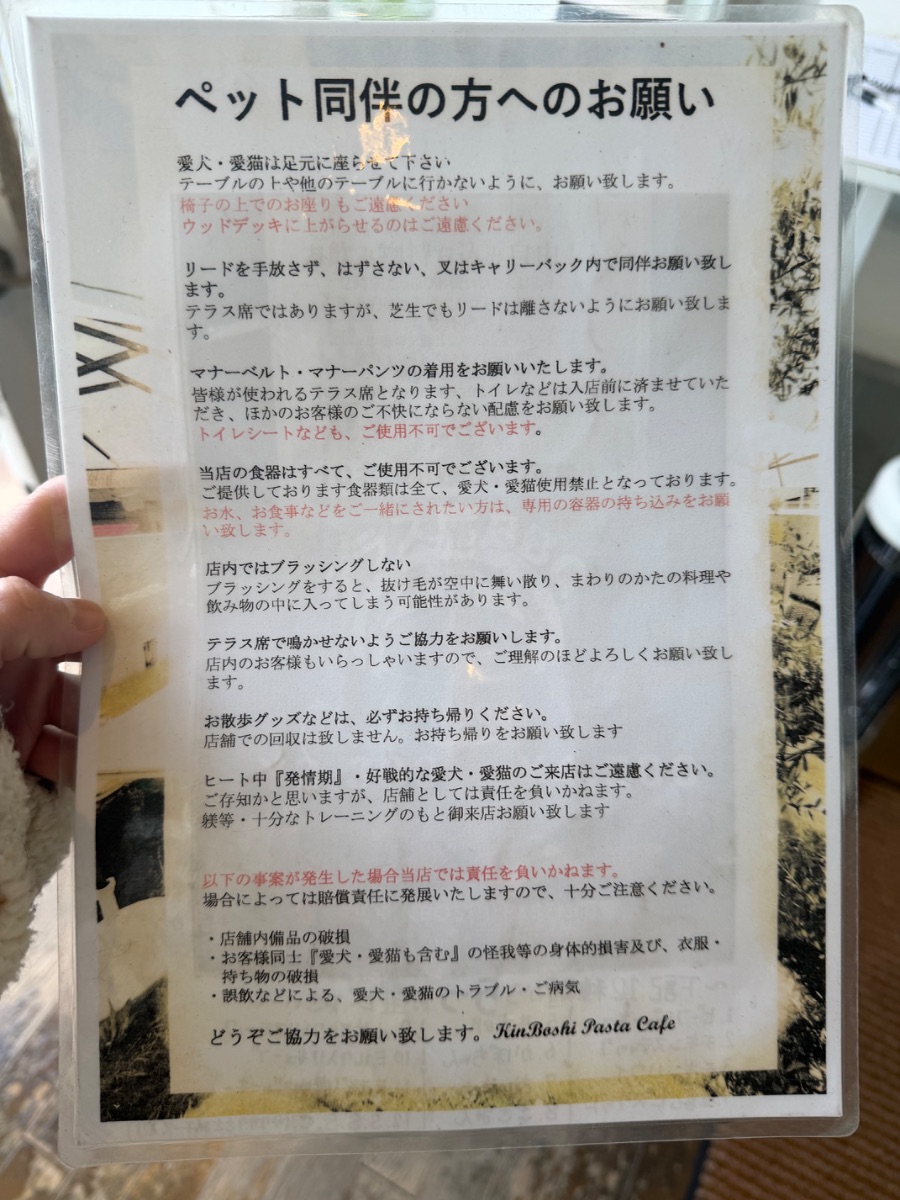 ペット同伴の方へのお願い
愛犬・愛猫は足元に座らせて下さい
テーブルの上や他のテーブルに行かないように、お願い致します。
椅子の上でのお座りもご遠慮ください
ウッドデッキに上がらせるのはご遠慮ください。
リードを手放さず、はずさない、又はキャリーバック内で同伴お願い致し
ます。
テラス席ではありますが、芝生でもリードは離さないようにお願い致しま
す。
マナーベルト・マナーパンツの着用をお願いいたします。
皆様が使われるテラス席となります、トイレなどは入店前に済ませていた
だき、ほかのお客様のご不快にならない配慮をお願い致します。
トイレシートなども、ご使用不可でございます。
当店の食器はすべて、ご使用不可でございます。
ご提供しております食器類は全て、愛犬・愛猫使用禁止となっております。
お水、お食事などをご一緒にされたい方は、専用の容器の持ち込みをお願
い致します。
店内ではブラッシングしない
ブラッシングをすると、抜け毛が空中に舞い散り、まわりのかたの料理や
飲み物の中に入ってしまう可能性があります。
テラス席で鳴かせないようご協力をお願いします。
店内のお客様もいらっしゃいますので、ご理解のほどよろしくお願い致し
ます。
お散歩グッズなどは、必ずお持ち帰りください。
店舗での回収は致しません。お持ち帰りをお願い致します
ヒート中『発情期』・好戦的な愛犬・愛猫のご来店はご遠慮ください。
ご存知かと思いますが、店舗としては責任を負いかねます。
躾等・十分なトレーニングのもと御来店お願い致します
以下の事案が発生した場合当店では責任を負いかねます。
場合によっては賠償責任に発展いたしますので、十分ご注意ください。
・店舗内備品の破損
・お客様同士『愛犬・愛猫も含む』の怪我等の身体的損害及び、衣服・
持ち物の破損
・誤飲などによる、愛犬・愛猫のトラブル・ご病気
どうぞご協力をお願い致します。KinBoshi Pasta Cafe